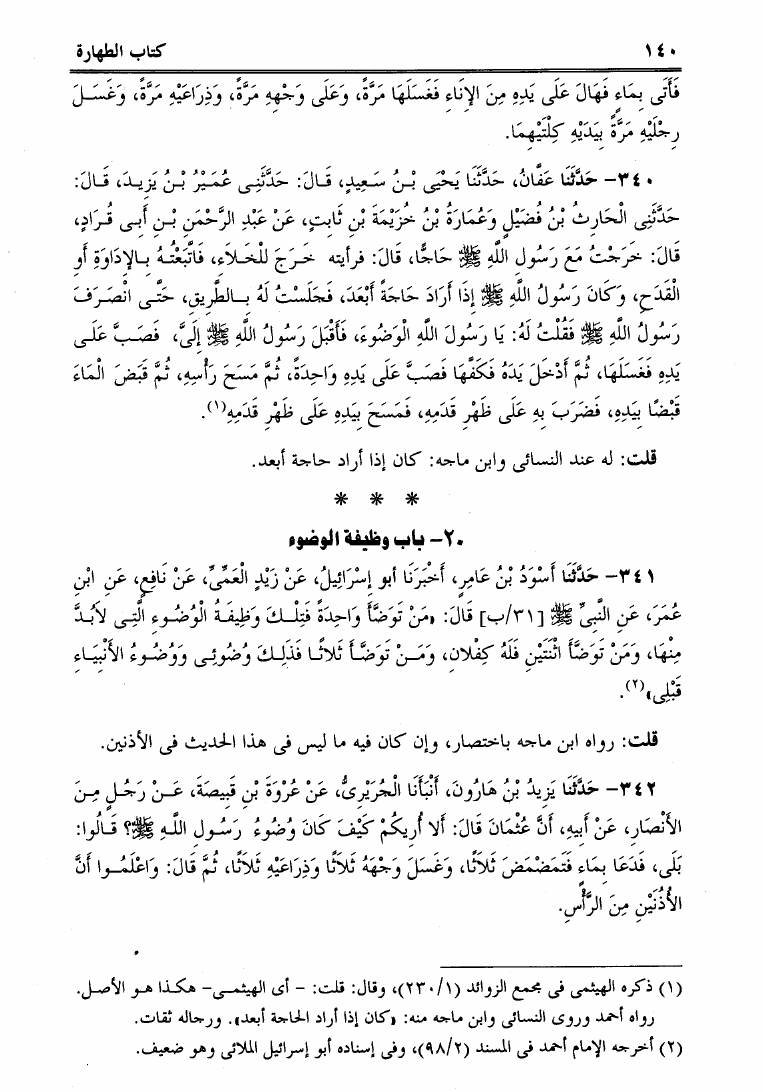 ١٤٠ كتاب الطهارة
فَأَتَى بِمَاءٍ فَهَالَ عَلَى يَدِهِ مِنَ الإِنَاءِ فَغَسَلَهَا مَرَّةً، وَعَلَى وَجْهِهِ مَرَّةً، وَذِرَاعَيْهِ مَرَّةً، وَغَسَلَ
رِجْلَيْهِ مَرَّةً بِيَدَيْهِ كِلْتَيْهِمَا.
٣٤٠- حَدَّثَنَا عَفَّانُ، حَدَّثَنَا يَحْيَى بْنُ سَعِيدٍ، قَالَ: حَدَّثَنِى عُمَيْرُ بْنُ يَزِيدَ، قَالَ:
حَدَّثَنِى الْحَارِثُ بْنُ فُضَيْلٍ وَعُمَارَةُ بْنُ خُزَيْمَةَ بْنِ ثَابِتٍ، عَنْ عَبْدِ الرَّحْمَنِ بْنِ أَبِى قُرَادٍ،
قَالَ: خَرَجْتُ مَعَ رَسُولِ اللَّهِ ﷺ حَاجًّا، قَالَ: فرأيته خَرَجَ لِلْخَلاَءِ، فَاتَّبَعْتُهُ بِالإِدَاوَةِ أَوِ
الْقَدَحِ، وَكَانَ رَسُولُ اللَّهِ ﷺ إِذَا أَرَادَ حَاجَةً أَبْعَدَ، فَجَلَسْتُ لَهُ بِالطَّرِيقِ، حَتَّى انْصَرَفَ
رَسُولُ اللَّهِ ﷺ فَقُلْتُ لَهُ: يَا رَسُولَ اللَّهِ الْوَضُوءَ، فَأَقْبَلَ رَسُولُ اللَّهِ ﷺ إِلَىَّ، فَصَبَّ عَلَى
يَدِهِ فَغَسَلَهَا، ثُمَّ أَدْخَلَ يَدَهُ فَكَفَّهَا فَصَبَّ عَلَى يَدِهِ وَاحِدَةً، ثُمَّ مَسَحَ رَأْسِهِ، ثُمَّ قَبَضَ الْمَاءَ
قَبْضًا بِيَدِهِ، فَضَرَبَ بِهِ عَلَى ظَهْرِ قَدَمِهِ، فَمَسَحَ بِيَدِهِ عَلَى ظَهْرِ قَدَمِهِ(١).
قلت: له عند النسائى وابن ماجه: كان إذا أراد حاجة أبعد.
* * *
٢٠- باب وظيفة الوضوء
٣٤١- حَدَّثَنَا أَسْوَدُ بْنُ عَامِرٍ، أَخْبَرَنَا أَبو إِسْرَائِيلَ، عَنْ زَيْدٍ الْعَمِّىِّ، عَنْ نَافِعٍ، عَنِ ابْنِ
عُمَرَ، عَنِ النَّبِىِّ ﷺ [٣١/ب] قَالَ: «مَنْ تَوَضَّأَ وَاحِدَةً فَتِلْكَ وَظِيفَةُ الْوُضُوءِ الَّتِى لاَبُدَّ
مِنْهَا، وَمَنْ تَوَضَّأَ اثْنَتَيْنِ فَلَهُ كِفْلاَنِ، وَمَنْ تَوَضَّأَ ثَلاَثًا فَذَلِكَ وُضُوئِى وَوُضُوءُ الأَنْبِيَاءِ
قَبْلِى»(٢).
قلت: رواه ابن ماجه باختصار، وإن كان فيه ما ليس فى هذا الحديث فى الأذنين.
٣٤٢- حَدَّثَنَا يَزِيدُ بْنُ هَارُونَ، أَنْبَأَنَا الْجُرَيْرِىُّ، عَنْ عُرْوَةَ بْنِ قَبِيصَةَ، عَنْ رَجُلٍ مِنَ
الأَنْصَارِ، عَنْ أَبِيهِ، أَنَّ عُثْمَانَ قَالَ: أَلاَ أُرِيكُمْ كَيْفَ كَانَ وُضُوءُ رَسُولِ اللَّهِ ﷺ؟ قَالُوا:
بَلَى، فَدَعَا بِمَاءٍ فَتَمَضْمَضَ ثَلاَثًا، وَغَسَلَ وَجْهَهُ ثَلاَثًا وَذِرَاعَيْهِ ثَلاَثًا، ثُمَّ قَالَ: وَاعْلَمُوا أَنَّ
الأُذُنَيْنِ مِنَ الرَّأْسِ.
(١) ذكره الهيثمى فى مجمع الزوائد (٢٣٠/١)، وقال: قلت: - أى الهيثمى- هكذا هو الأصل.
رواه أحمد وروى النسائى وابن ماجه منه: «كان إذا أراد الحاجة أبعد». ورجاله ثقات.
(٢) أخرجه الإمام أحمد فى المسند (٩٨/٢)، وفى إسناده أبو إسرائيل الملائى وهو ضعيف.